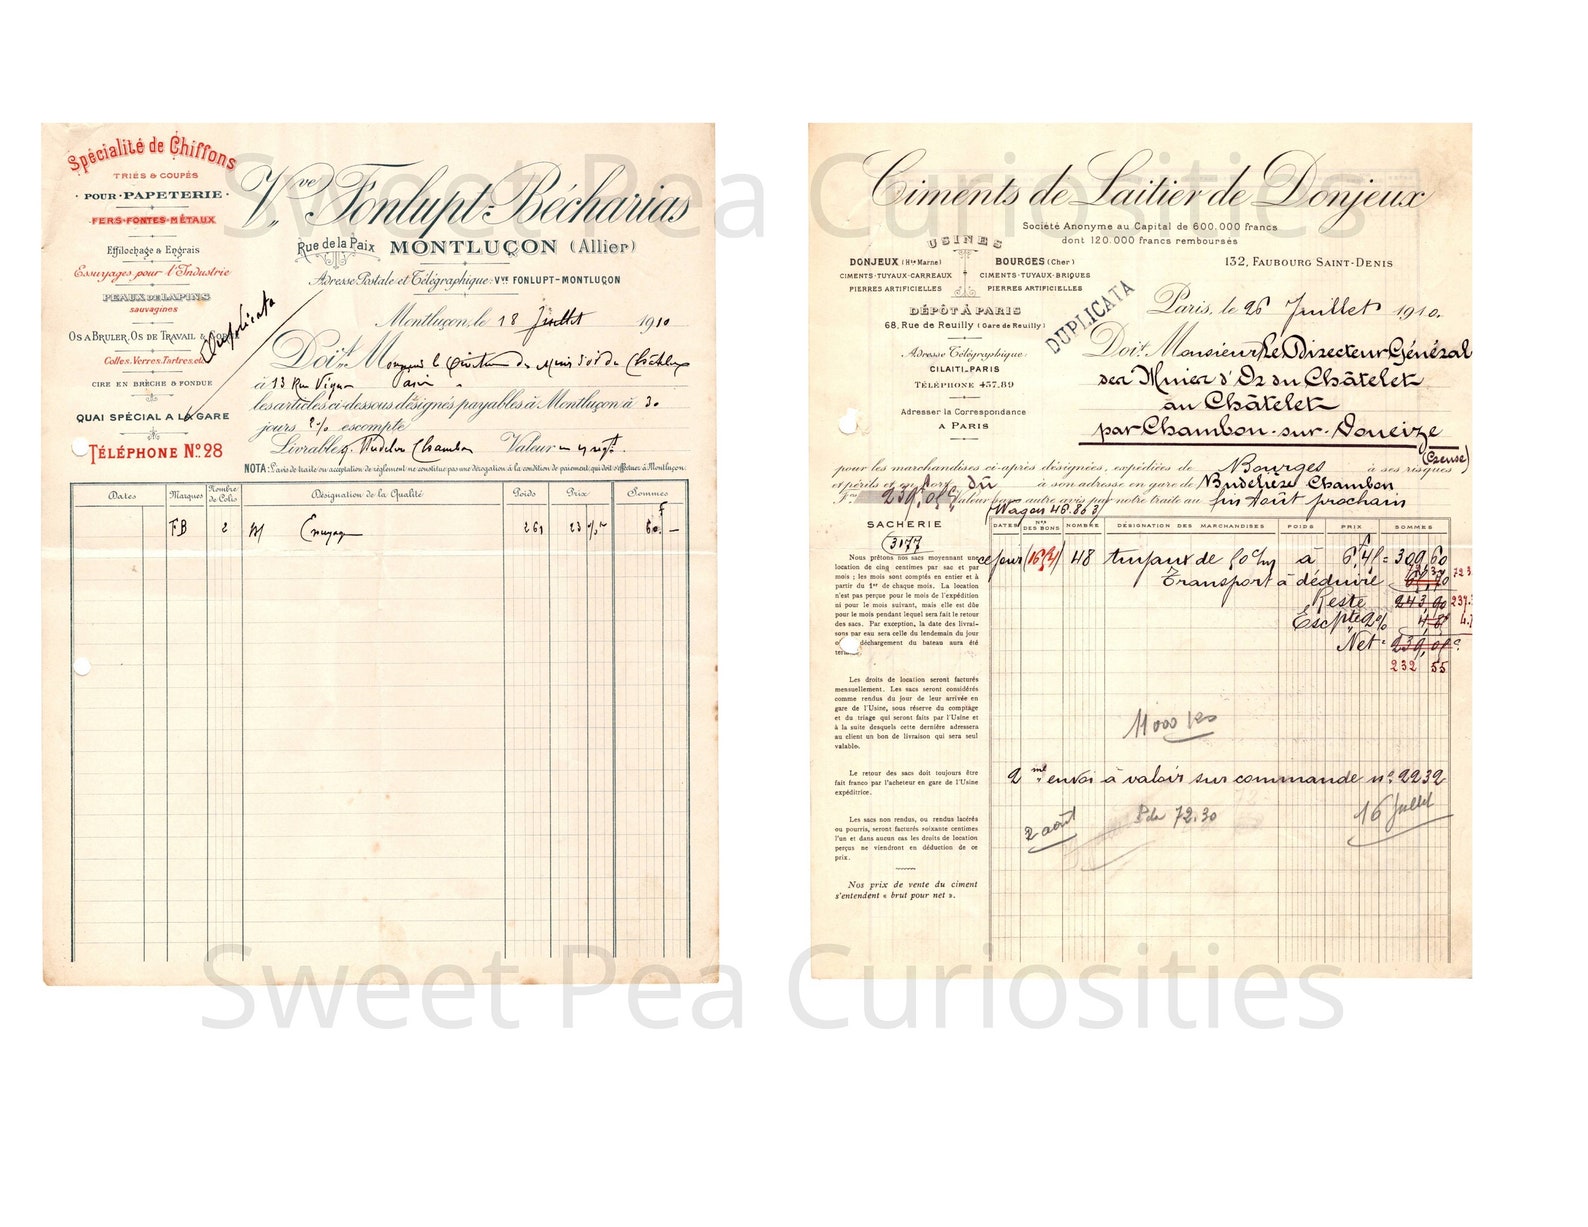 Spécialité de Chiffons
TRIÉS & COUPÉS
· POUR · PAPETERIE ·
FERS-FONTES-MÉTAUX
Effilochage & Engrais
Essuyages pour l'Industrie
PEAUX DE LAPINS
sauvagines
OS A BRULER, OS DE TRAVAIL &
Colles, Verres, Tartres, etc.
CIRE EN BRÈCHE & FONDUE
QUAI SPÉCIAL A LA GARE
TÉLÉPHONE No. 28
Duplicata
Vve Fonlupt-Bécharias
Rue de la Paix MONTLUÇON (Allier)
Adresse Postale et Télégraphique: VVE FONLUPT-MONTLUÇON
Montluçon, le 18 Juillet 1910
Doit M le Directeur des Mines d'or du Châtelet
à 13 Rue Vignon Paris
les articles ci-dessous désignés payables à Montluçon à 30
jours 2% escompte
Livrable g. Budelière Chambon Valeur
NOTA: L'avis de traite ou acceptation de règlement ne constitue pas une dérogation à la condition de paiement qui doit s'effectuer à Montluçon.
Dates Marques Nombre de Colis Désignation de la Qualité Poids Prix Sommes
FB 2 23 % F 60. —
Ciments de Laitier de Donjeux
Société Anonyme au Capital de 600.000 francs
dont 120.000 francs remboursés
USINES
DONJEUX (Hte Marne) BOURGES (Cher)
CIMENTS-TUYAUX-CARREAUX CIMENTS-TUYAUX-BRIQUES
PIERRES ARTIFICIELLES PIERRES ARTIFICIELLES
132, FAUBOURG SAINT-DENIS
DÉPÔT À PARIS
68, Rue de Reuilly (Gare de Reuilly)
Adresse Télégraphique:
CILAITI-PARIS
TÉLÉPHONE 457.89
Adresser la Correspondance
A PARIS
DUPLICATA
Paris, le 26 Juillet 1910.
Doit Monsieur Le Directeur Général
des Mines d'Or du Châtelet
au Châtelet
par Chambon-sur-Voueize
(Creuse)
pour les marchandises ci-après désignées, expédiées de Bourges à ses risques
et périls et en port dû à son adresse en gare de Budelière Chambon
Fcs 239,05 Valeur sans autre avis par notre traite au fin Août prochain
Wagon 46.863
SACHERIE
(3177)
Nous prêtons nos sacs moyennant une
location de cinq centimes par sac et par
mois ; les mois sont comptés en entier et à
partir du 1er de chaque mois. La location
n'est pas perçue pour le mois de l'expédition
ni pour le mois suivant, mais elle est dûe
pour le mois pendant lequel sera fait le retour
des sacs. Par exception, la date des livrai-
sons par eau sera celle du lendemain du jour
où déchargement du bateau aura été
terminé.
Les droits de location seront facturés
mensuellement. Les sacs seront considérés
comme rendus du jour de leur arrivée en
gare de l'Usine, sous réserve du comptage
et du triage qui seront faits par l'Usine et
à la suite desquels cette dernière adressera
au client un bon de livraison qui sera seul
valable.
Le retour des sacs doit toujours être
fait franco par l'acheteur en gare de l'Usine
expéditrice.
Les sacs non rendus, ou rendus lacérés
ou pourris, seront facturés soixante centimes
l'un et dans aucun cas les droits de location
perçus ne viendront en déduction de ce
prix.
Nos prix de vente du ciment
s'entendent « brut pour net ».
DATES Nos DES BONS NOMBRE DÉSIGNATION DES MARCHANDISES POIDS PRIX SOMMES
ce jour 48 tuyaux de 50 c/m à 6f,45 = 309,60
Transport à déduire
Reste 243,90
Escpte 2% 4,87
Net = 239,05
232 55
11000 kos
2me envoi à valoir sur commande no. 2232
2 août 72.30 16 Juillet
Sweet Pea Curiosities
Sweet Pea Curiosities